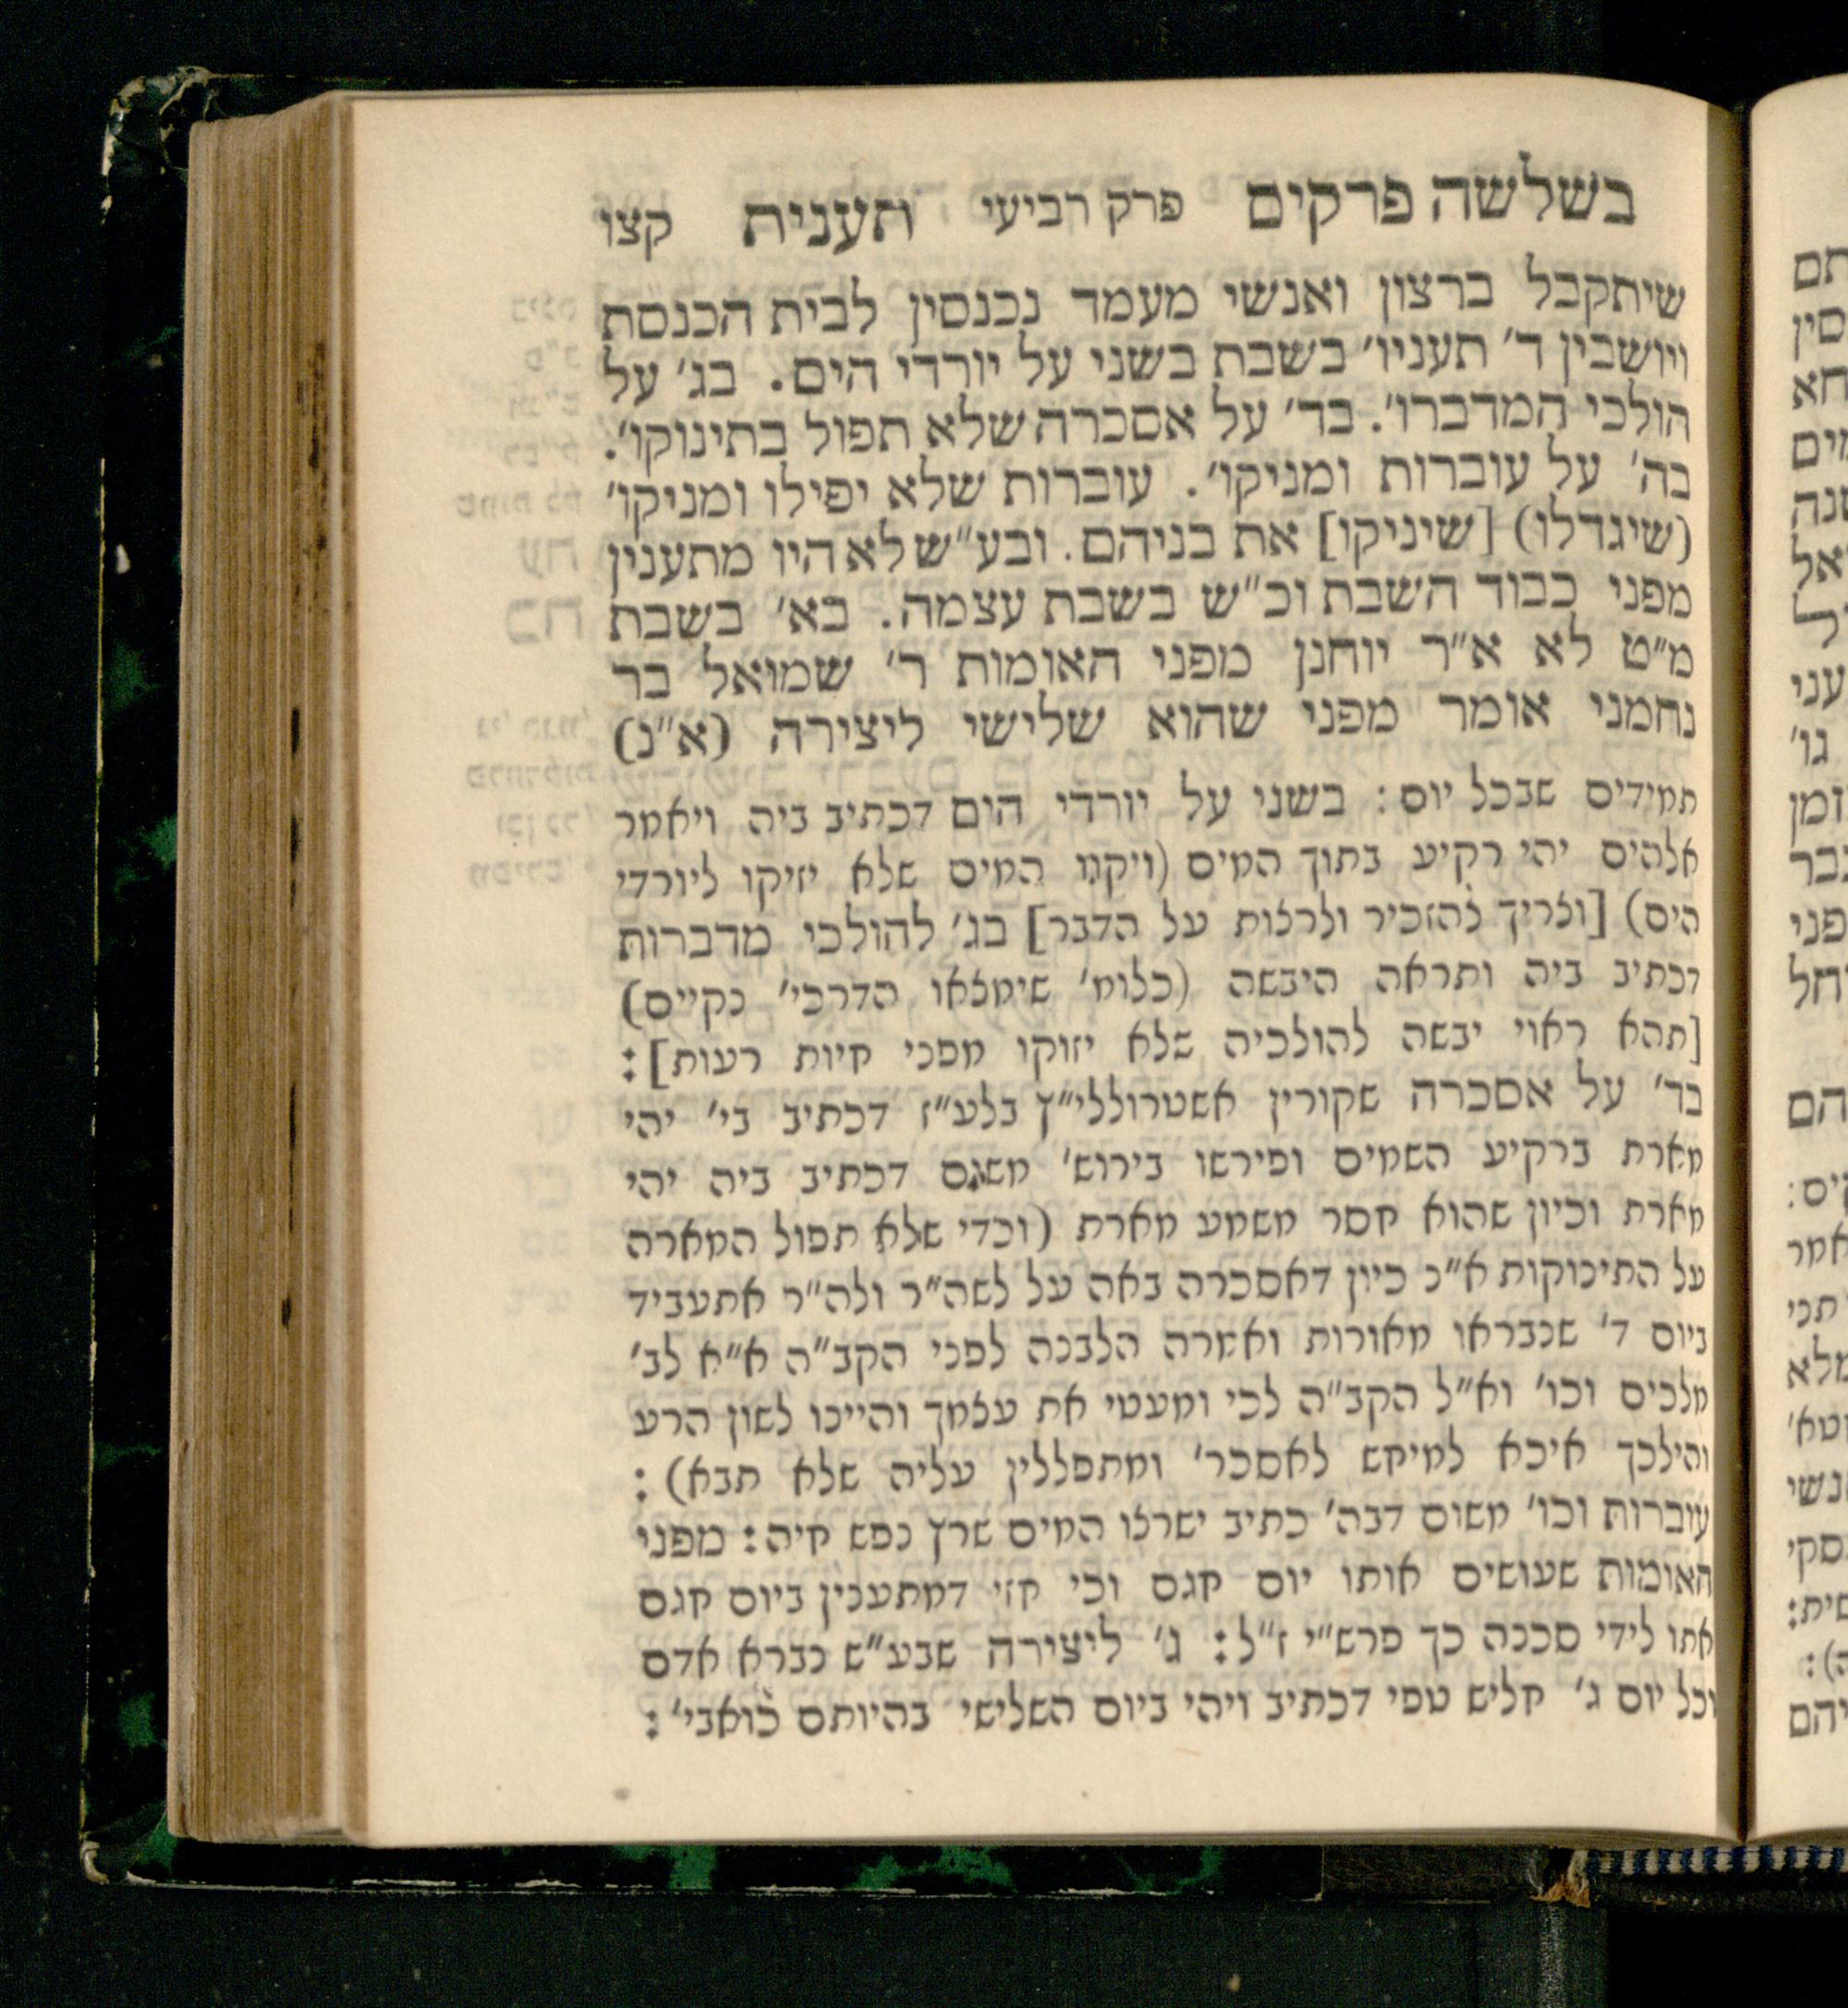 בשלשה פרקים פרק רביעי תענית קצו
שיתקבל ברצון ואנשי מעמד נכנסין לבית הכנסת
ויושבין ד׳ תעניו׳ בשבת בשני על יורדי הים. בג׳ על
הולכי המדברו׳. בד׳ על אסכרה שלא תפול בתינוקו׳.
בה׳ על עוברות ומניקו׳. עוברות שלא יפילו ומניקו׳
(שיגדלו) [שיניקו] את בניהם. ובע״ש לא היו מתענין
מפני כבוד השבת וכ״ש בשבת עצמה. בא׳ בשבת
מ״ט לא א״ר יוחנן מפני האומות ר׳ שמואל בר
נחמני אומר מפני שהוא שלישי ליצירה (א״נ)
תמידים שבכל יום: בשני על יורדי הים דכתיב ביה ויאמר
אלהים יהי רקיע בתוך המים (ויקוו המים שלא יזיקו ליורדי
הים) [וצריך להזכיר ולרצות על הדבר] בג׳ להולכי מדברות
דכתיב ביה ותראה היבשה (כלומ׳ שימצאו הדרכי׳ נקיים)
[תהא ראוי יבשה להולכיה שלא יזוקו מפני חיות רעות]:
בד׳ על אסכרה שקורין אשטרוללי״ץ בלע״ז דכתיב בי׳ יהי
מארת ברקיע השמים ופירשו בירוש׳ משום דכתיב ביה יהי
מארת וכיון שהוא חסר משמע מארת (וכדי שלא תפול המארה
על התינוקות א״נ כיון דאסכרה באה על לשה״ר ולה״ר אתעביד
ביום ד׳ שנבראו מאורות ואמרה הלבנה לפני הקב״ה א״א לב׳
מלכים וכו׳ וא״ל הקב״ה לכי ומעטי את עצמך והיינו לשון הרע
והילכך איכא למיחש לאסכר׳ ומתפללין עליה שלא תבא):
עוברות וכו׳ משום דבה׳ כתיב ישרצו המים שרץ נפש חיה: מפני
האומות שעושים אותו יום חגם וכי חזי דמתענין ביום חגם
אתו לידי סכנה כך פרש״י ז״ל: ג׳ ליצירה שבע״ש נברא אדם
וכל יום ג׳ חליש טפי דכתיב ויהי ביום השלישי בהיותם כואבי׳: